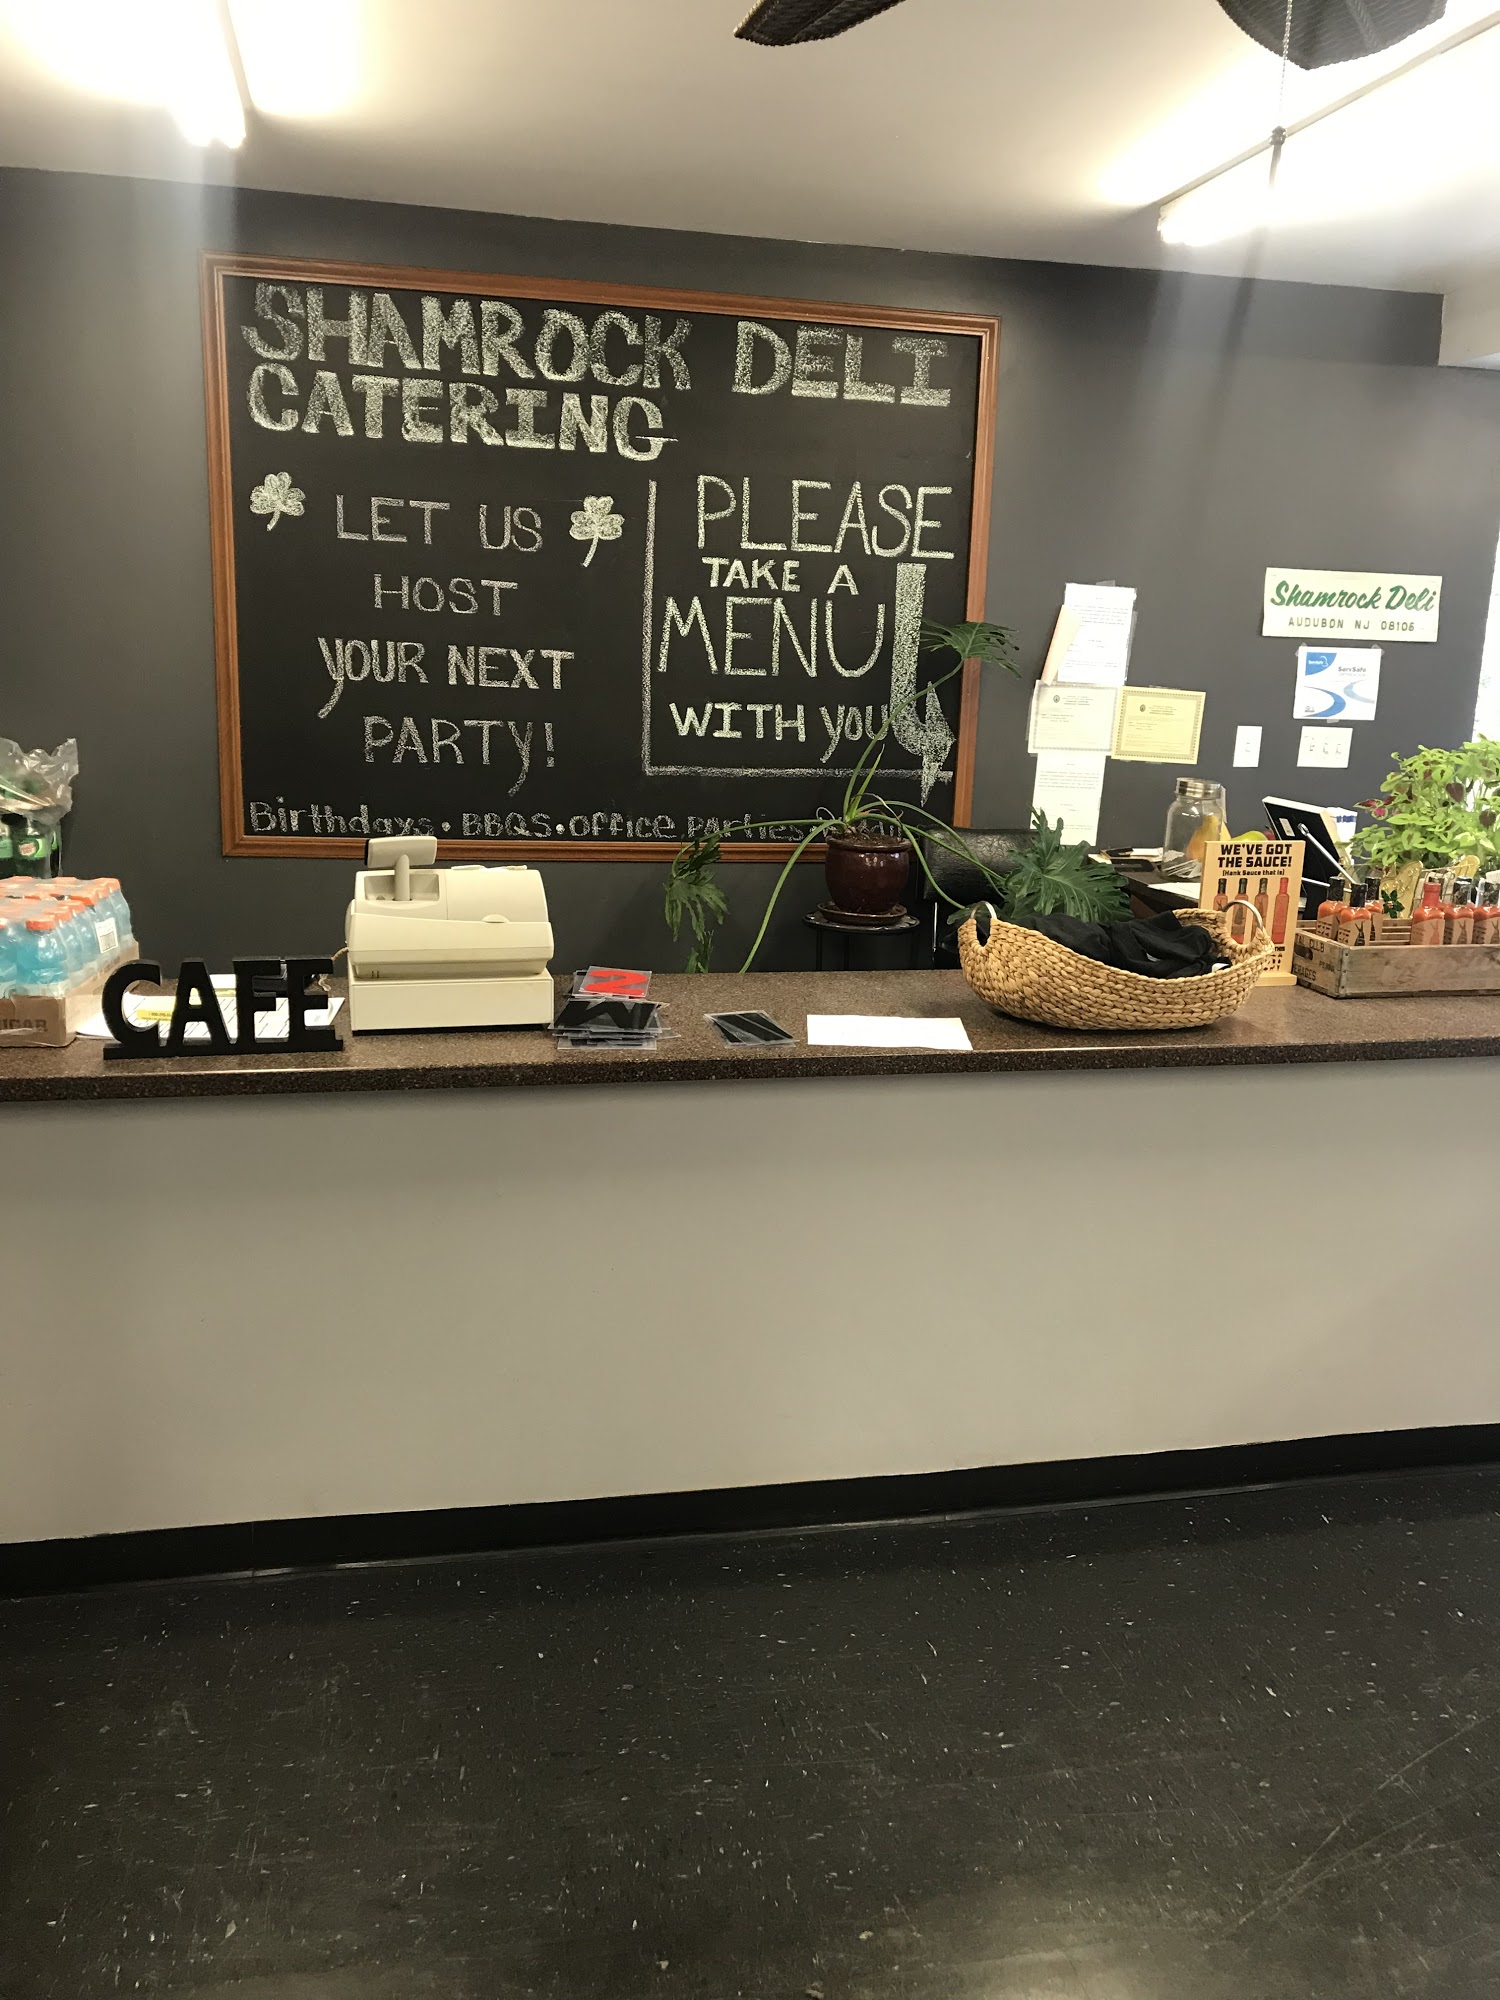 SHAMROCK DELI
CATERING
LET US
HOST
YOUR NEXT
PARTY!
PLEASE
TAKE A
MENU
WITH YOU
Birthdays • BBQS • office parties
Shamrock Deli
AUDUBON NJ 08106
ServSafe
WE'VE GOT
THE SAUCE!
(Hank Sauce that is)
CAFE
N
M